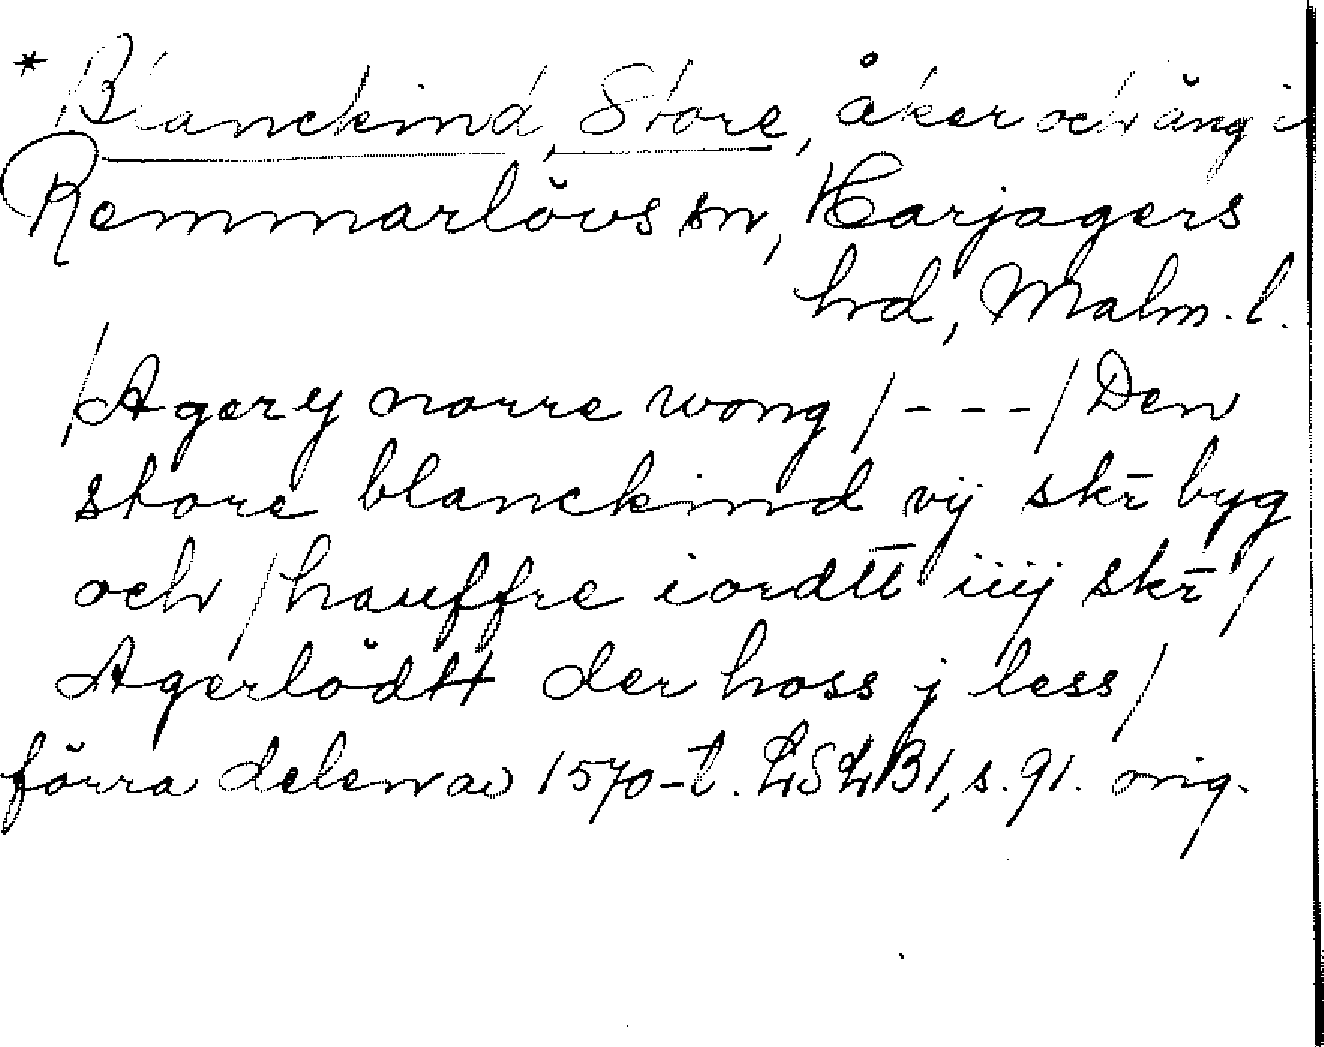 * Blanckind, Store, åker och äng i
Remmarlövs sn, Harjagers
hrd, Malm. l.
/Ager ij norre wong /---/ Den
store blanckind vij skr̄ byg
och /hauffre iordtt̄ iiij skr̄ /
Agerlödtt der hoss j less/
förra delen av 1570-t. LSLB1, s. 91. orig.